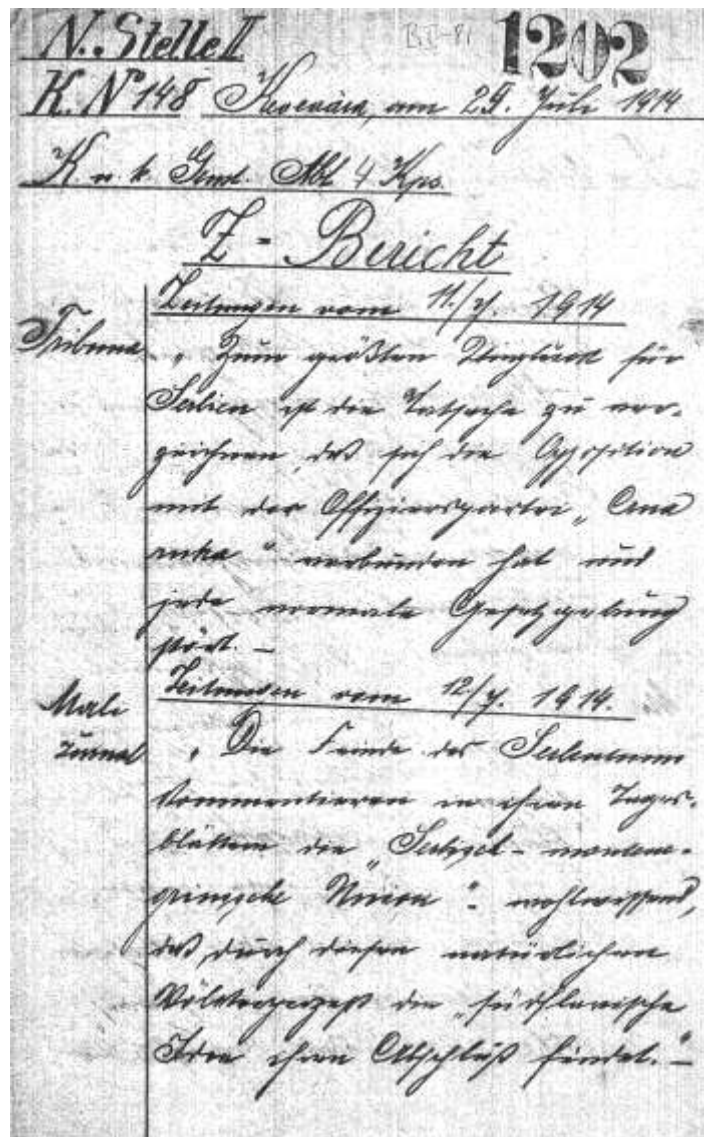 N. Stelle II
1202
K. Nº 148 am 25. Juli 1914
K. u. k. Genst. Abt 4 Kps.
Z - Bericht
Zeitungen vom 11./7. 1914
Tribuna
„ Zum größten Unglück für
Serbien ist die Tatsache zu ver-
zeichnen, daß sich die Opposition
mit der Offizierspartei „ Crna
ruka " verbunden hat und
jede normale Gesetzgebung
stört. —
Zeitungen vom 12./7. 1914.
Mali
Žurnal
„ Die Feinde des Serbentums
kommentieren in ihren Tages-
blättern die „ Serbisch - montene-
grinische Union ". wohlwissend,
daß durch diesen natürlichen
die „ südslavische
Idee ihren Abschluß findet." —